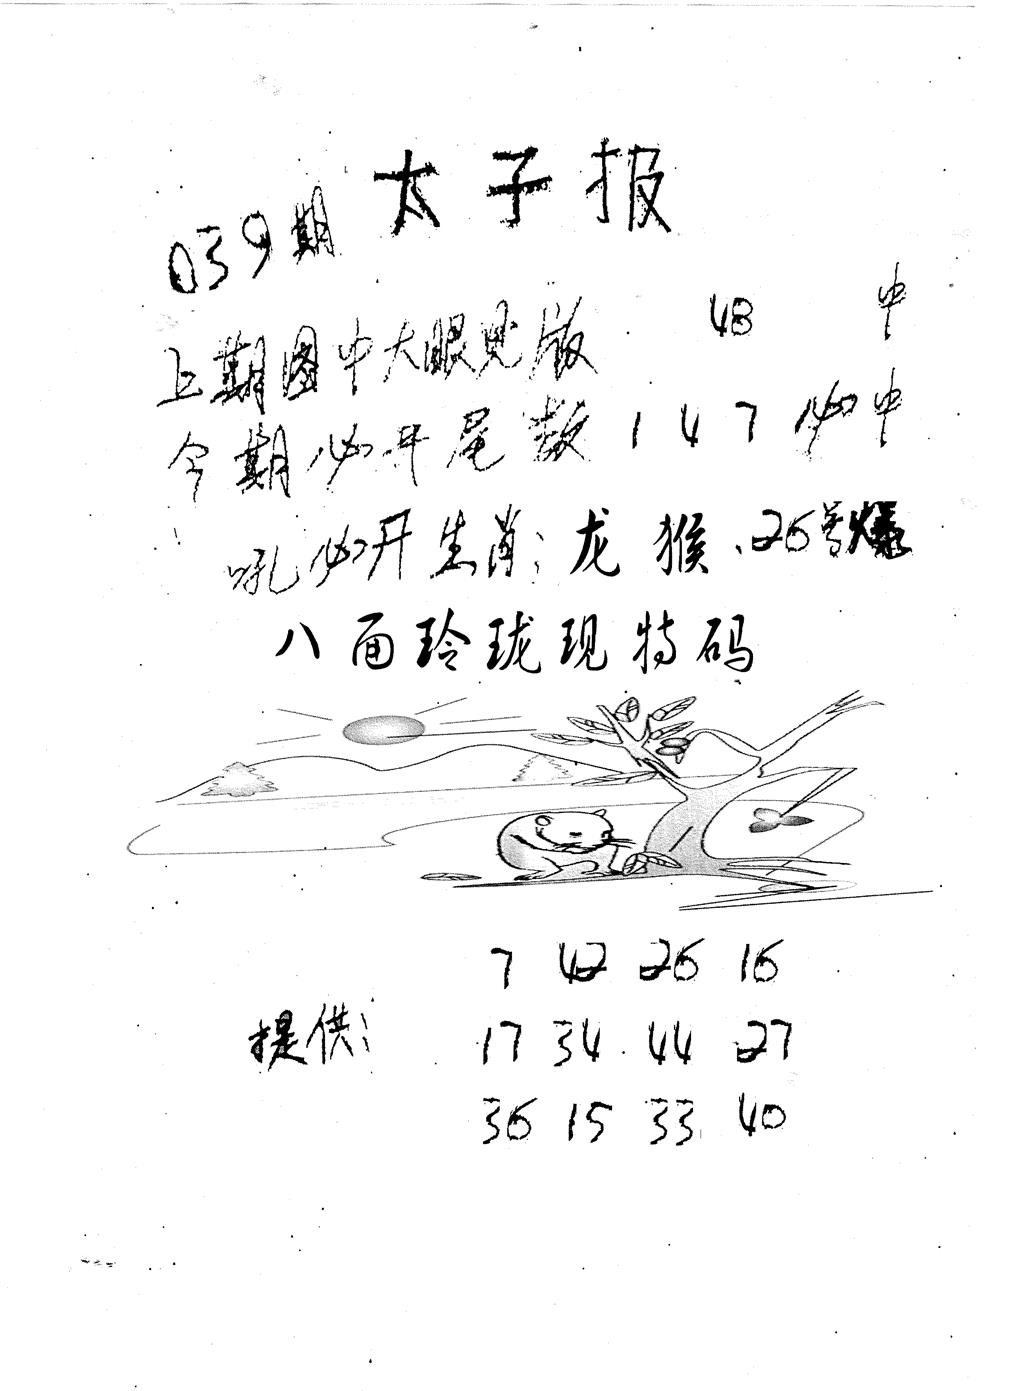 太子报
039期
上期图中大眼见版 48 中
今期必开尾数 1 4 7 必中
吼必开生肖：龙 猴、26号爆
八面玲珑现特码
7 42 26 16
提供： 17 34 44 27
36 15 33 40